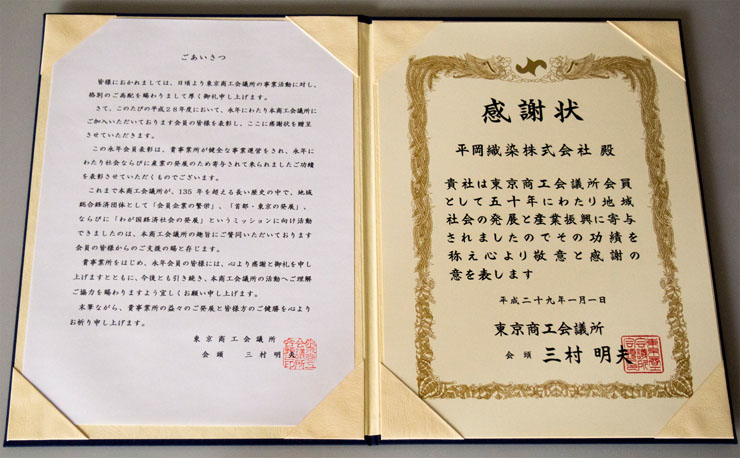 ごあいさつ
皆様におかれましては、日頃より東京商工会議所の事業活動に対し、
格別のご高配を賜わりまして厚く御礼申し上げます。
さて、このたびの平成２８年度において、永年にわたり本商工会議所に
ご加入いただいております会員の皆様を表彰し、ここに感謝状を贈呈
させていただきます。
この永年会員表彰は、貴事業所が健全な事業運営をされ、永年に
わたり社会ならびに産業の発展のため寄与されて来られましたご功績
を表彰させていただくものでございます。
これまで本商工会議所が、135 年を超える長い歴史の中で、地域
総合経済団体として「会員企業の繁栄」、「首都・東京の発展」、
ならびに「わが国経済社会の発展」というミッションに向け活動
できましたのは、本商工会議所の趣旨にご賛同いただいております
会員の皆様からのご支援の賜と存じます。
貴事業所をはじめ、永年会員の皆様には、心より感謝と御礼を申し
上げますとともに、今後とも引き続き、本商工会議所の活動へご理解
ご協力を賜わりますよう宜しくお願い申し上げます。
末筆ながら、貴事業所の益々のご発展と皆様方のご健勝を心より
お祈り申し上げます。
東京商工会議所
会頭 三村明夫
感謝状
平岡織染株式会社 殿
貴社は東京商工会議所会員
として五十年にわたり地域
社会の発展と産業振興に寄与
されましたのでその功績を
称え心より敬意と感謝の
意を表します
平成二十九年一月一日
東京商工会議所
会頭 三村明夫